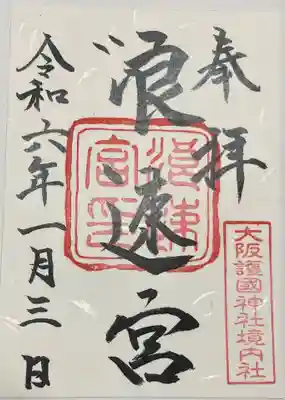 奉拝
浪速宮
令和六年一月三日
浪速宮印
大阪護國神社境内社